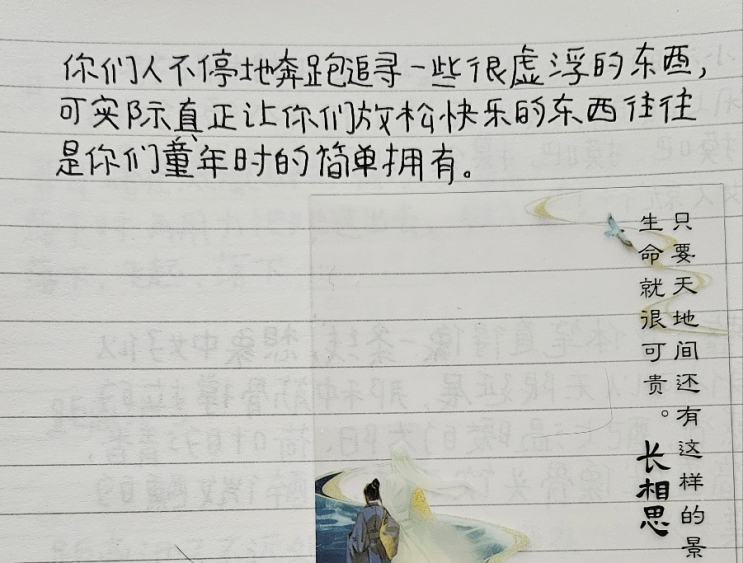 你们人不停地奔跑追寻一些很虚浮的东西，
可实际真正让你们放松快乐的东西往往
是你们童年时的简单拥有。
只要天地间还有这样的景
生命就很可贵。
长相思